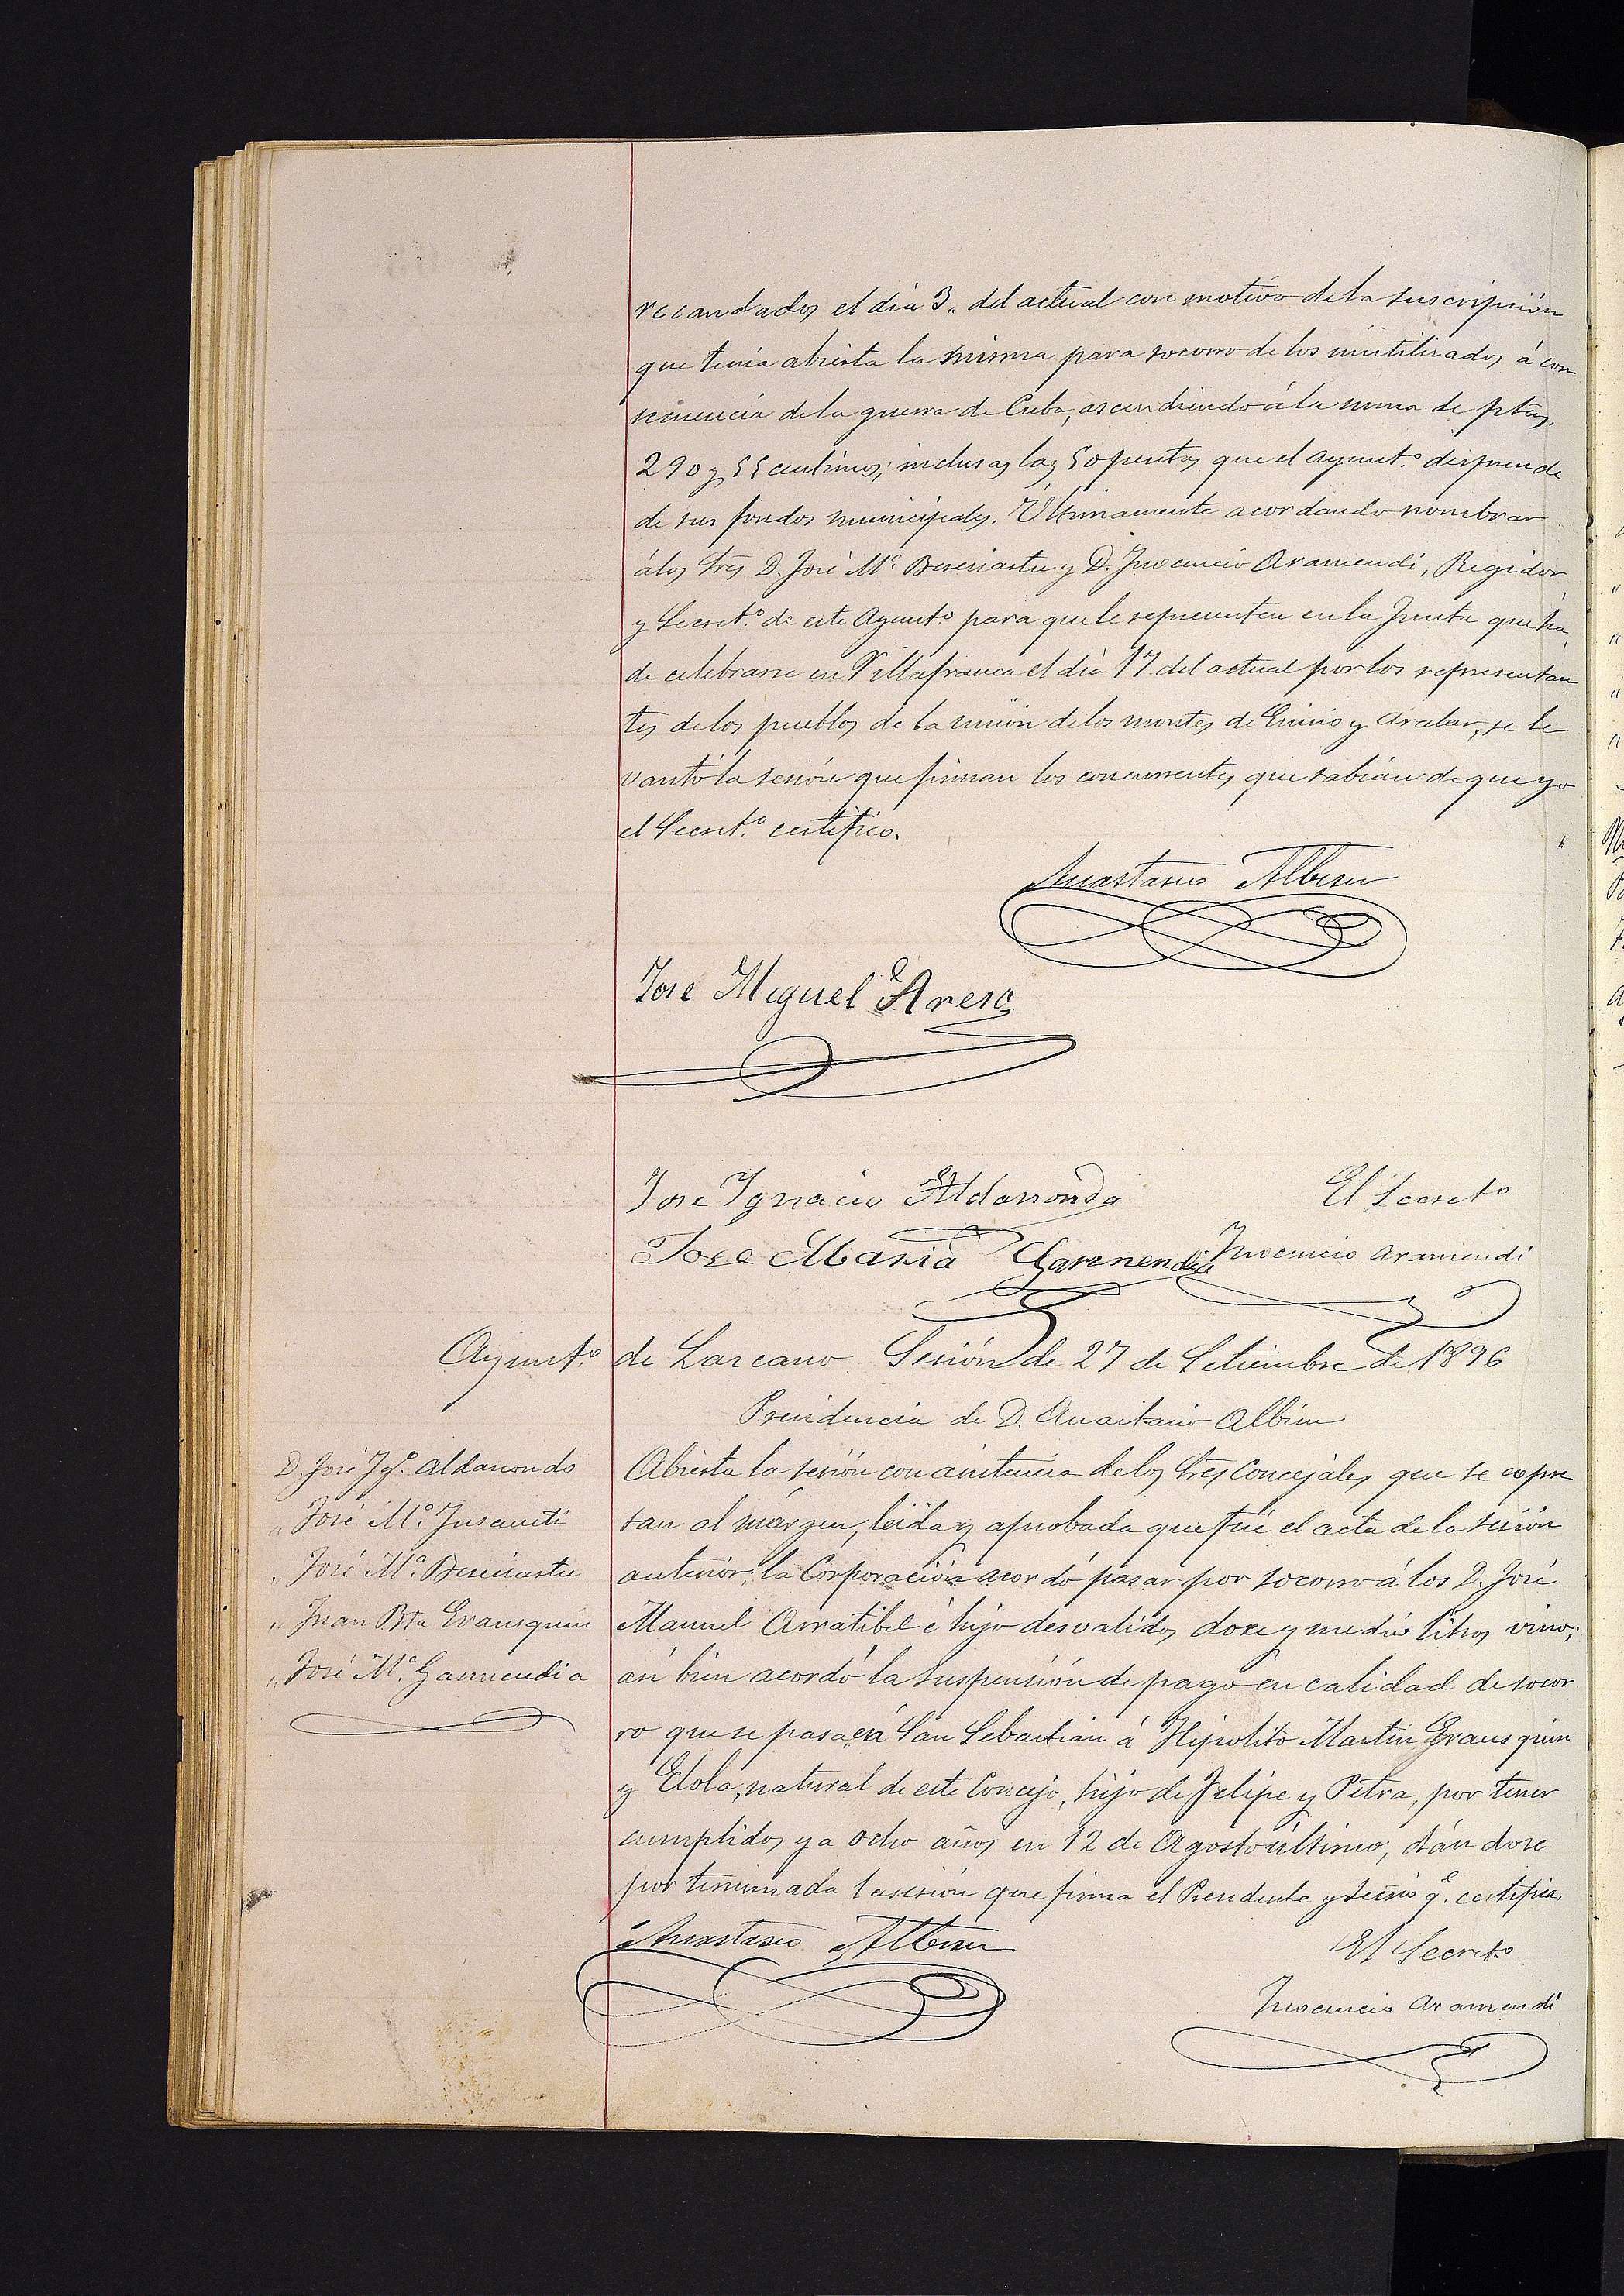 recaudados el día 3. del actual con motivo de la suscripción
que tenía abierta la misma para socorro de los inutilizados á con
secuencia de la guerra de Cuba, ascendiendo á la suma de ptas.
290 y 55 centimos; inclusas las 50 pesetas que el ayunt.º desprende
de sus fondos municipales. Últimamente acordando nombrar
á los Sres D. José M.ª Bereciartu y D. Inocencio Aramendi, Regidor
y Secret.º de este Ayunt.º para que le representen en la Junta que ha
de celebrarse en Villafranca el día 17 del actual por los representan
tes de los pueblos de la unión de los montes de Enirio y Aralar, se le
vantó la sesión que firman los concurrentes que sabían de que yo
el Secret.º certifico.
Anastasio Albisu
José Miguel Areso
José Ignacio Aldanondo
El Secret.º
José Maria Garmendia
Inocencio Aramendi
Ayunt.º de Lazcano. Sesión de 27 de Setiembre de 1896
Presidencia de D. Anastasio Albisu
D. José Ig.º Aldanondo
" José M.ª Insausti
" José M.ª Bereciartu
" Juan Bta Erausquin
" José M.ª Garmendia
Abierta la sesión con asistencia de los Sres Concejales que se expre
san al márgen, leida y aprobada que fué el acta de la sesión
anterior, la Corporación acordó pasar por socorro á los D. José
Manuel Arratibel é hijo desvalidos doce y medio litros vino;
asi bien acordó la suspensión de pago en calidad de socor
ro que se pasa en San Sebastian á Hipolito Martin Erausquin
y Elola, natural de este Concejo, hijo de Felipe y Petra, por tener
cumplidos ya ocho años en 12 de Agosto último, dándose
por terminada la sesión que firma el Presidente y Secrio q.e certifica.
Anastasio Albisu
El Secret.º
Inocencio Aramendi